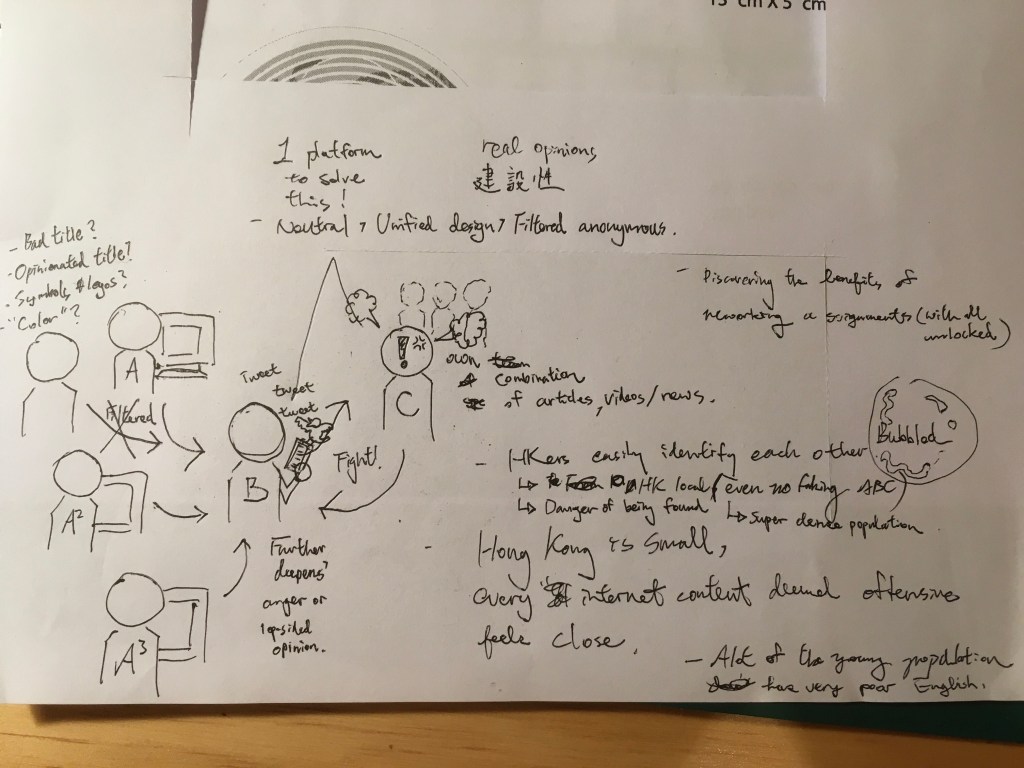 15 cm X 5 cm
1 platform
to solve
this!
real opinions
建設性
- Neutral, Unified design, Filtered anonymous.
- Bad title?
- Opinionated title?
- Symbols, logos?
- "Color"?
A
Filtered
A²
A³
B
Tweet
tweet
tweet
Fight!
C
Further
deepens
anger or
lopsided
opinion.
own
combination
of articles, videos/news.
- Discovering the benefits of
networking assignments (with all
unlocked)
- HKers easily identify each other
↳ HK local/even no faking ABC
↳ Danger of being found
↳ Super dense population
- Hong Kong is small,
every internet content deemed offensive
feels close.
- Alot of the young population
have very poor English.